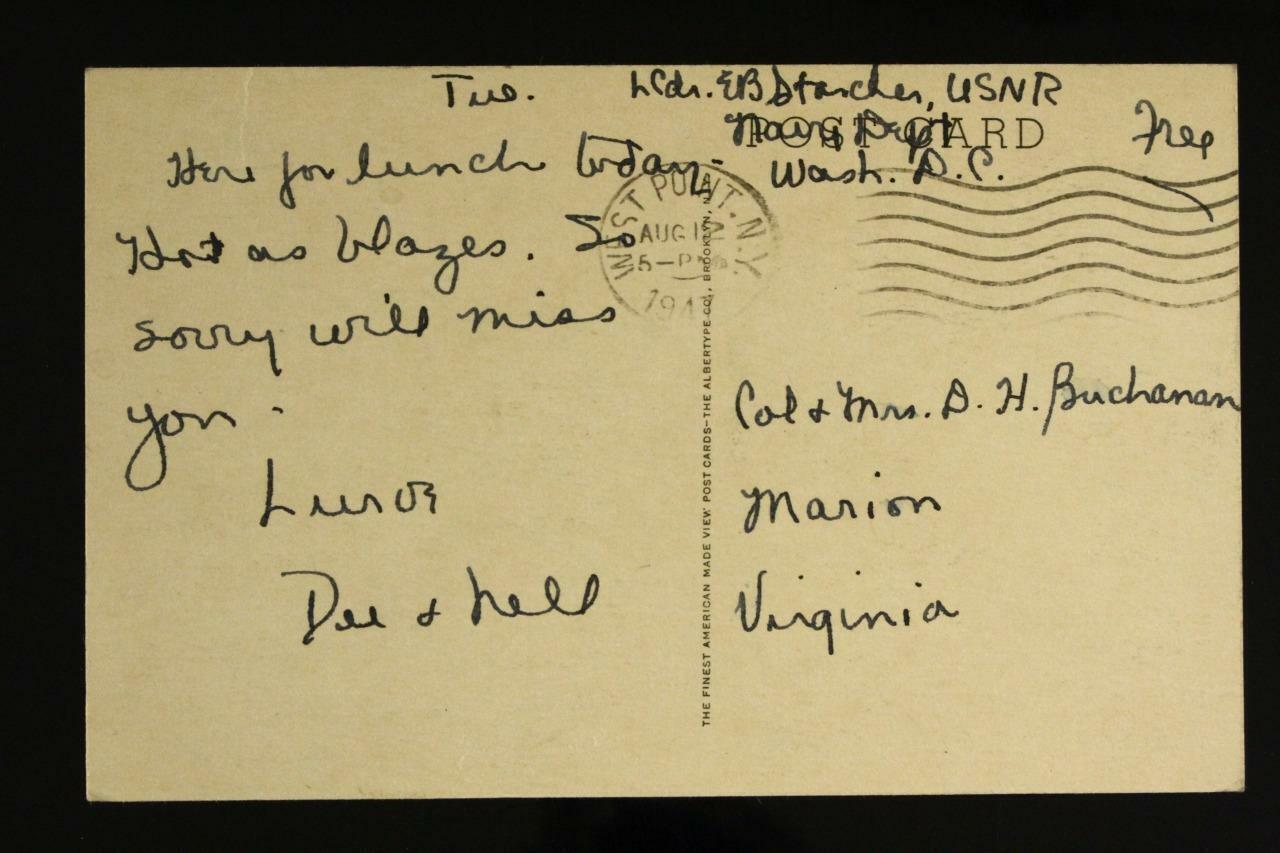 Tue.
Here for lunch today-
Hot as blazes. So
sorry will miss
you -
Luroz
Dee & Nell
LCdr. EB Starcher, USNR
Navy Dept
Wash. D.C.
Free
POST CARD
WEST POINT. N.Y.
AUG
5-PM
194
THE FINEST AMERICAN MADE VIEW POST CARDS-THE ALBERTYPE CO., BROOKLYN, N.
Col & Mrs. D. H. Buchanan
Marion
Virginia